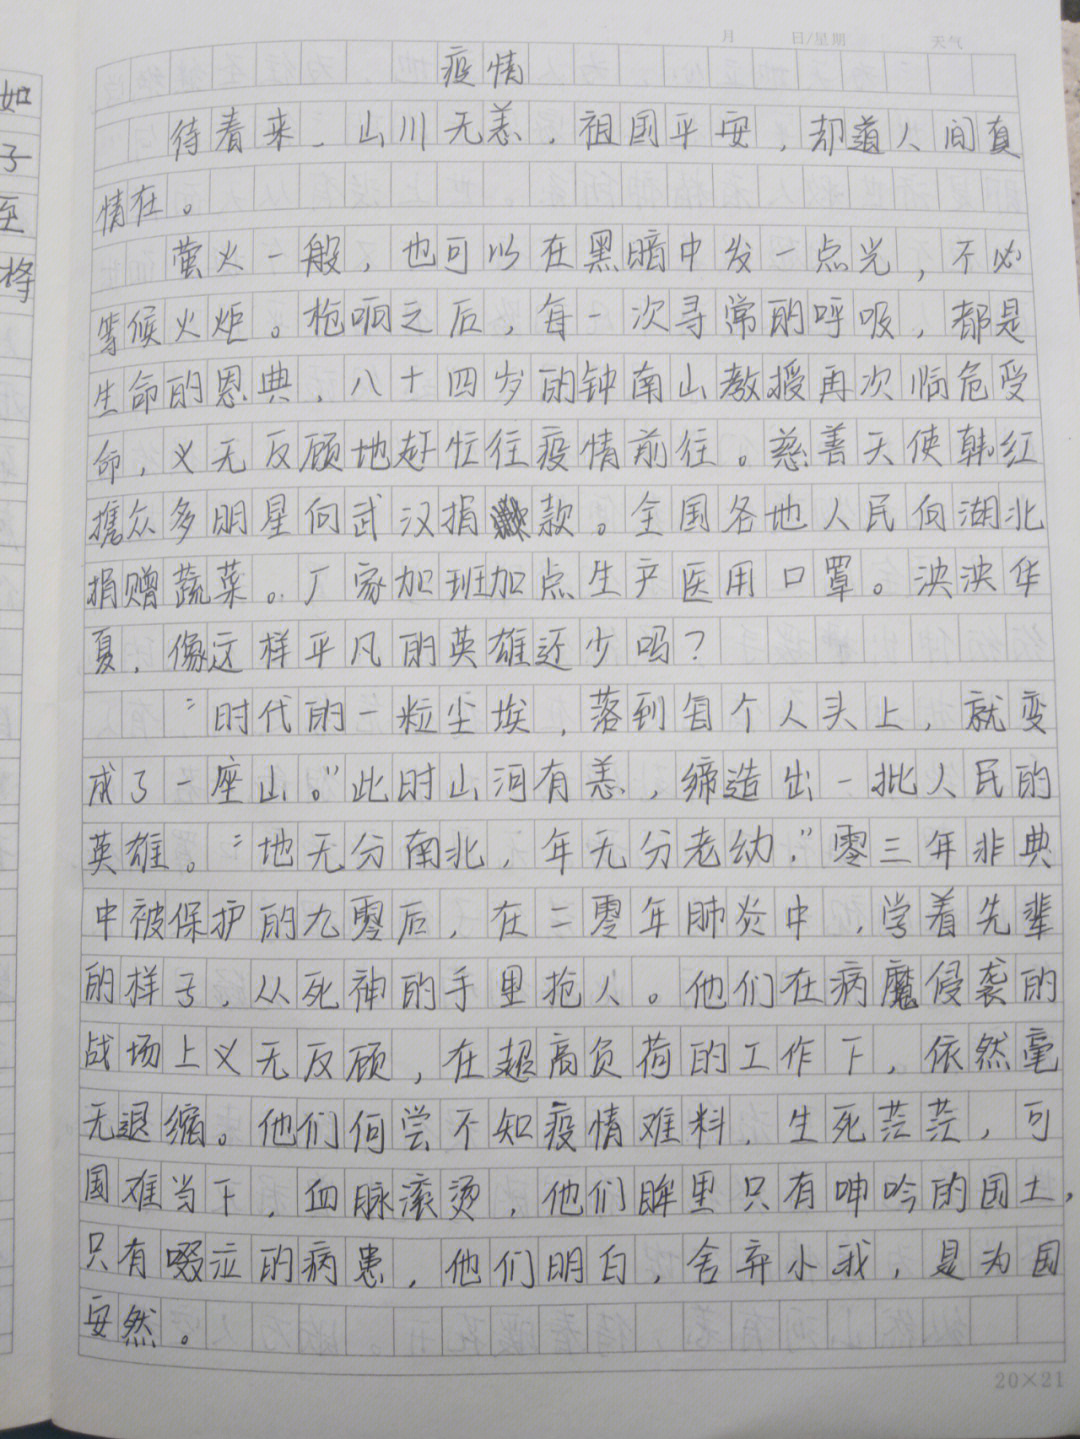 月 日/星期 天气
疫情
待春来、山川无恙，祖国平安，却道人间真
情在。
萤火一般，也可以在黑暗中发一点光，不必
等候火炬。枪响之后，每一次寻常的呼吸，都是
生命的恩典，八十四岁的钟南山教授再次临危受
命，义无反顾地赶忙往疫情前往。慈善天使韩红
携众多明星向武汉捐款。全国各地人民向湖北
捐赠蔬菜。厂家加班加点生产医用口罩。泱泱华
夏，像这样平凡的英雄还少吗？
“时代的一粒尘埃，落到每个人头上，就变
成了一座山。”此时山河有恙，缔造出一批人民的
英雄。“地无分南北，年无分老幼，”零三年非典
中被保护的九零后，在二零年肺炎中，学着先辈
的样子，从死神的手里抢人。他们在病魔侵袭的
战场上义无反顾，在超高负荷的工作下，依然毫
无退缩。他们何尝不知疫情难料，生死茫茫，可
国难当下，血脉滚烫，他们眸里只有呻吟的国土，
只有啜泣的病患，他们明白，舍弃小我，是为国
安然。
20×21
如
子
至
将